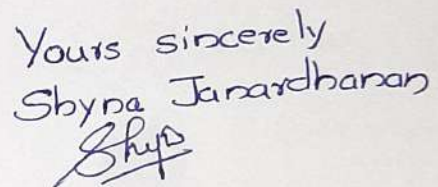 Yours sincerely
Shyna Janardhanan
Shyn